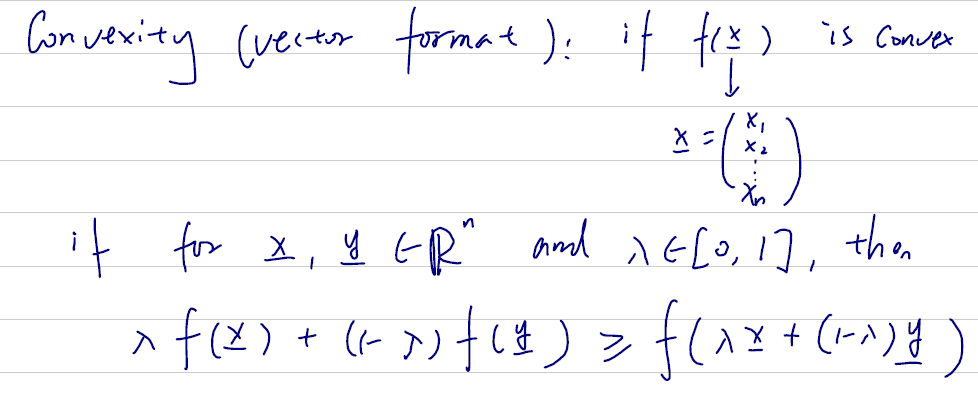 Convexity (vector format): if f(x̲) is convex
↓
x̲ = (x₁ x₂ ⋮ xₙ)
if for x̲, y̲ ∈ ℝⁿ and λ ∈ [0, 1], then
λ f(x̲) + (1-λ) f(y̲) ≥ f(λx̲ + (1-λ)y̲)